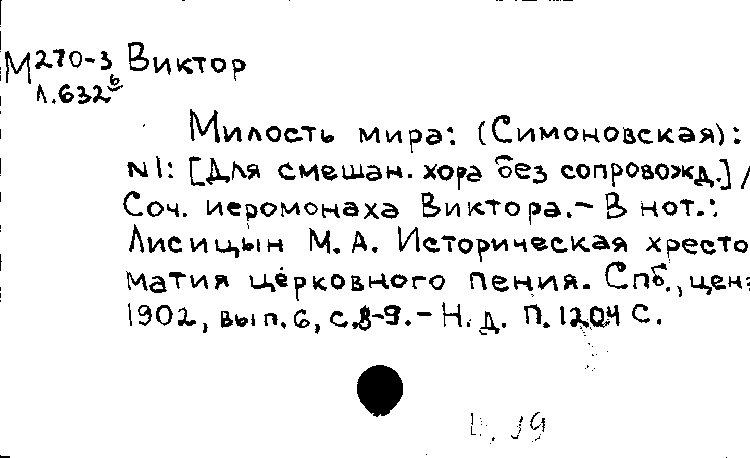 М270-3 Виктор
Л.632⁶
Милость мира: (Симоновская):
N1: [Для смешан. хора без сопровожд.] /
Соч. иеромонаха Виктора.- В нот.:
Лисицын М.А. Историческая хресто
матия церковного пения. Спб., ценз
1902, вып. 6, с.8-9.- Н.д. П. 1204 С.